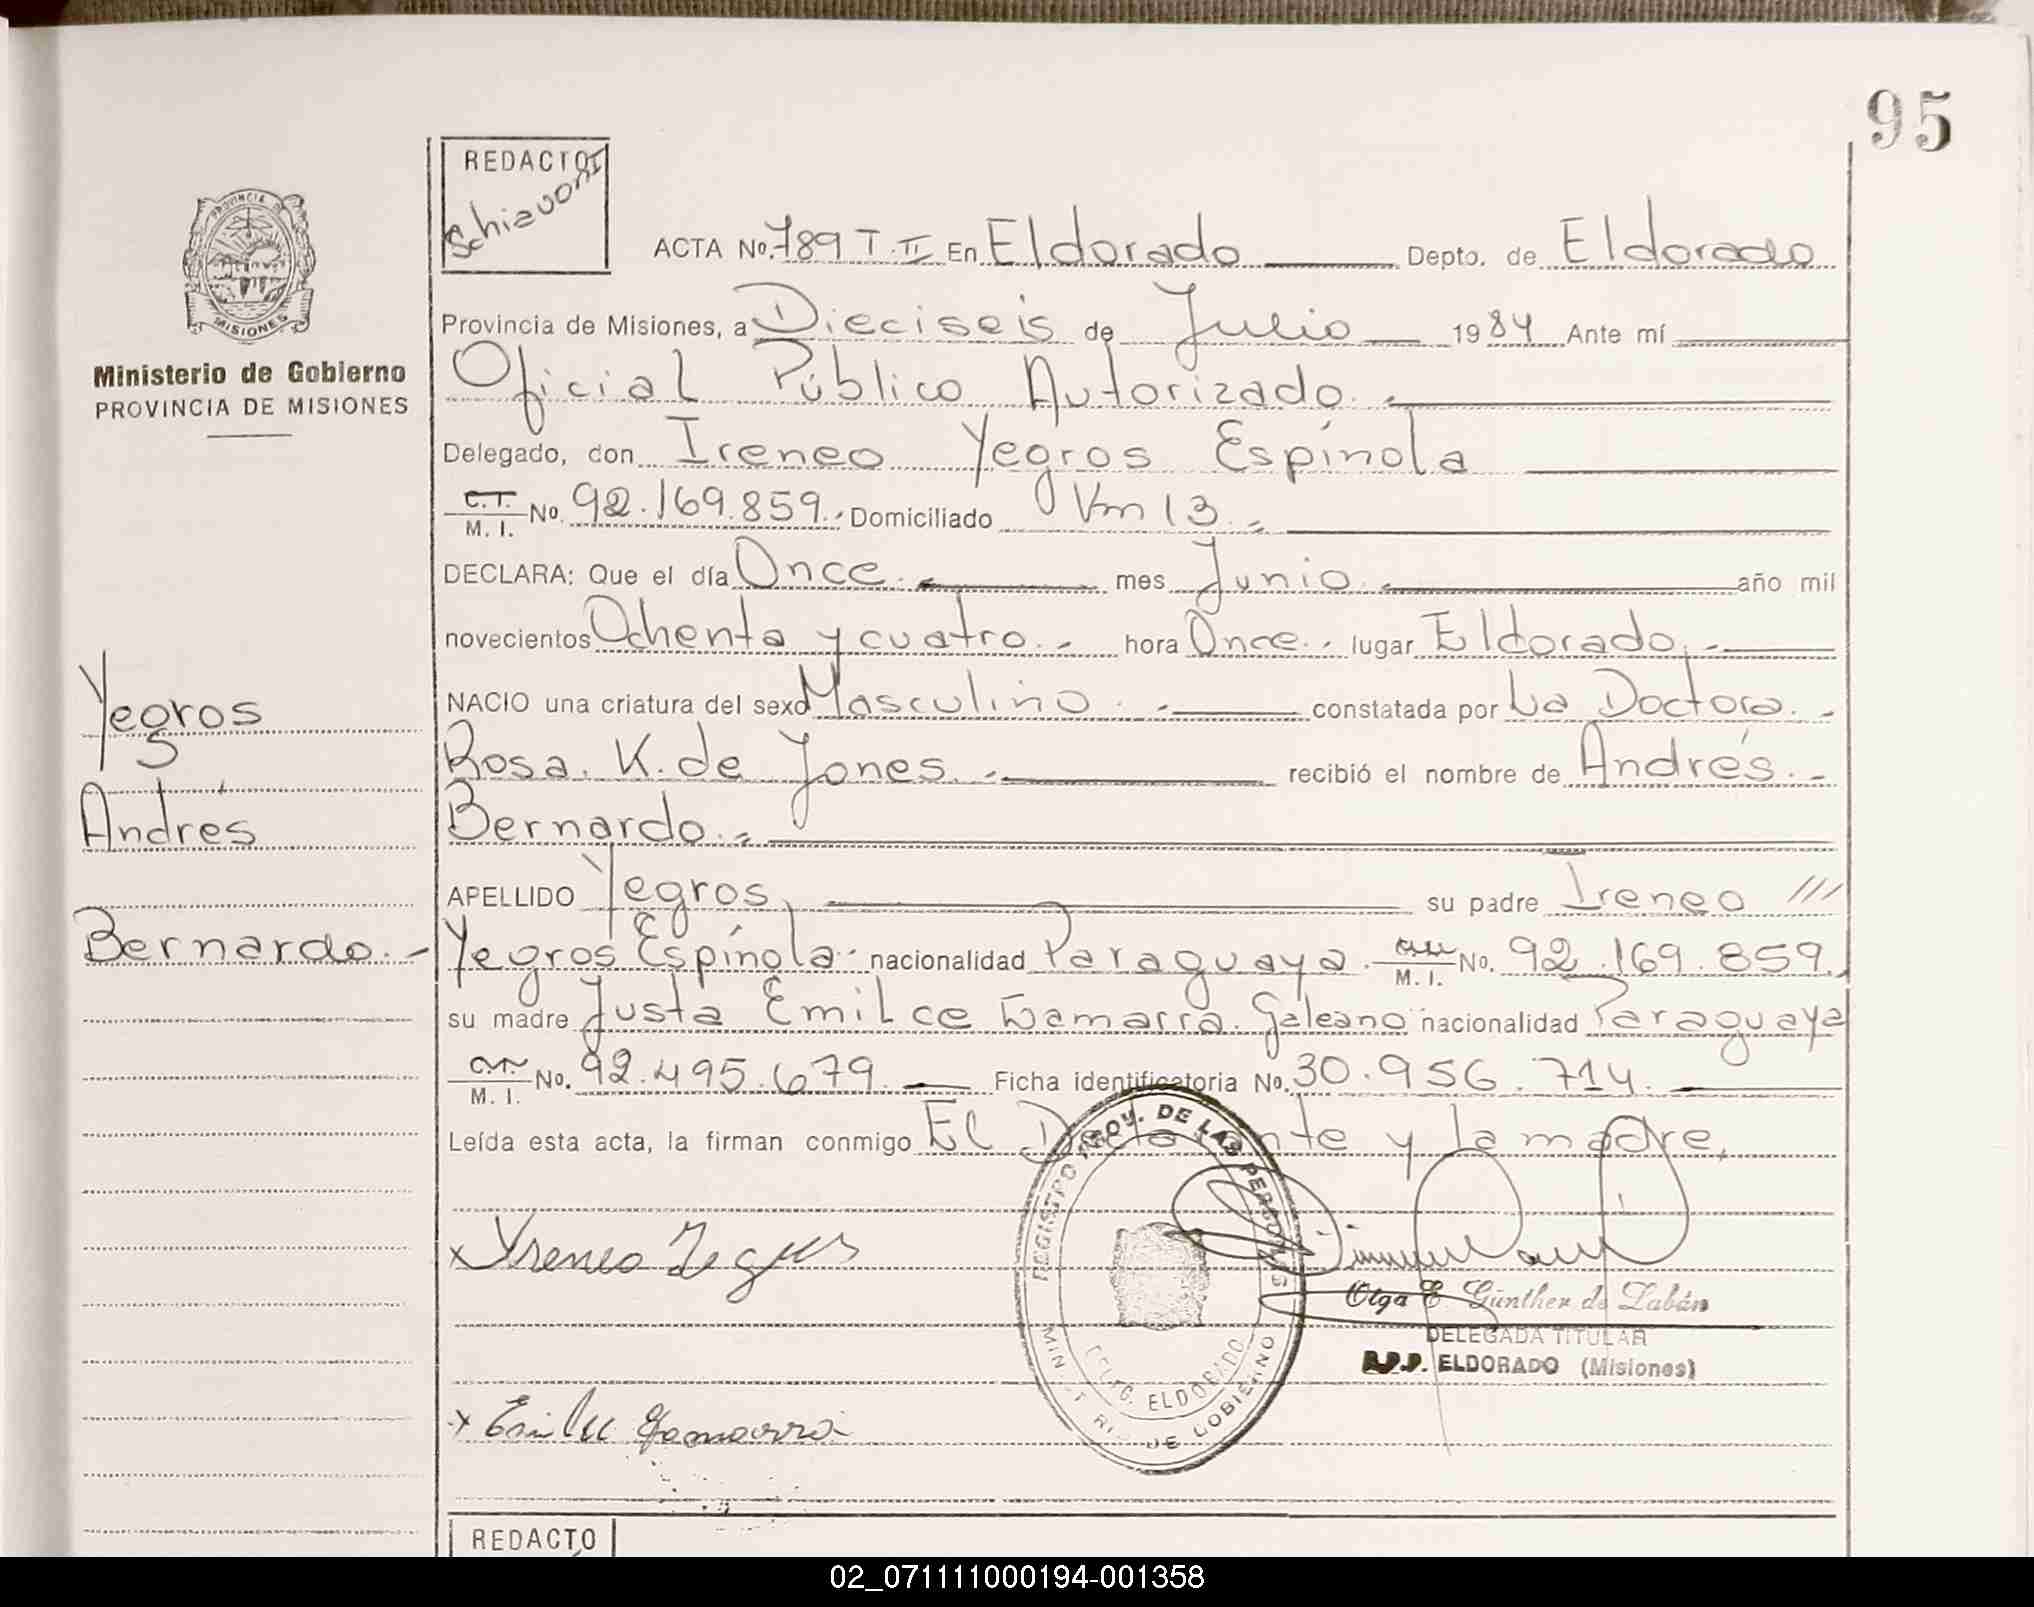 95
REDACTO
Schiavoni
PROVINCIA DE
MISIONES
Ministerio de Gobierno
PROVINCIA DE MISIONES
ACTA No. 789 T. II En Eldorado Depto. de Eldorado
Provincia de Misiones, a Dieciseis de Julio 1984 Ante mí
Oficial Público Autorizado.
Delegado, don Ireneo Yegros Espínola
C.I. M. I. No. 92.169.859.- Domiciliado Km 13.-
DECLARA: Que el día Once.- mes Junio.- año mil
novecientos Ochenta y cuatro.- hora Once.- lugar Eldorado.-
NACIO una criatura del sexo Masculino.- constatada por La Doctora.-
Rosa. K. de Jones.- recibió el nombre de Andrés.-
Bernardo.-
APELLIDO Yegros, su padre Ireneo ///
Yegros Espínola.- nacionalidad Paraguaya.- M. I. No. 92.169.859.
su madre Justa Emilce Gamarra. Galeano nacionalidad Paraguaya
M. I. No. 92.495.679.- Ficha identificatoria No. 30.956.714.-
Leída esta acta, la firman conmigo El Declarante y la madre,
Yegros
Andrés
Bernardo.-
x Yreneo Yegros
x Emilce Gamarra
REGISTRO PROV. DE LAS PERSONAS
DELEG. ELDORADO
MINISTERIO DE GOBIERNO
Olga E. Günther de Labán
DELEGADA TITULAR
R.P.P. ELDORADO (Misiones)
REDACTO
02_071111000194-001358